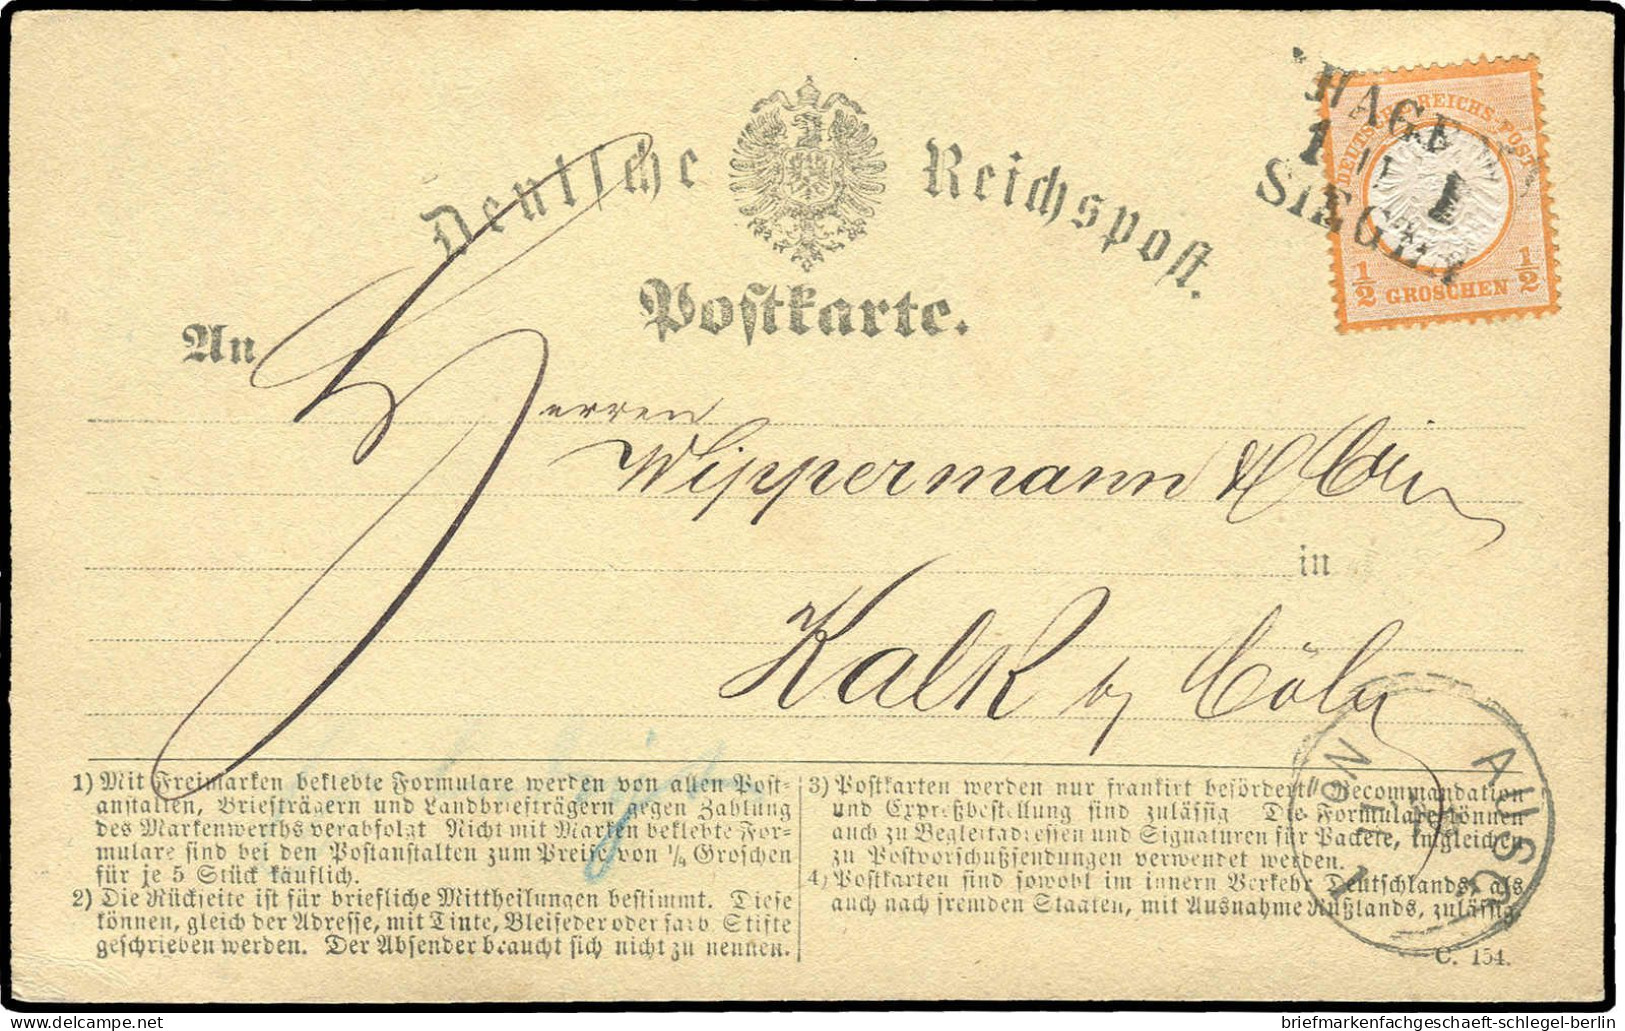 Deutsche Reichspost.
Postkarte.
HAGEN
SIEGEN
DEUTSCHE REICHS-POST
1/2 GROSCHEN 1/2
An
Herren
Wippermann &
in
Kalk b/ Cöln
AUSG
No 1
1) Mit Freimarken beklebte Formulare werden von allen Post-
anstalten, Briefträgern und Landbriefträgern gegen Zahlung
des Markenwerths verabfolgt Nicht mit Marken beklebte For-
mulare sind bei den Postanstalten zum Preise von ¼ Groschen
für je 5 Stück käuflich.
2) Die Rückseite ist für briefliche Mittheilungen bestimmt. Diese
können, gleich der Adresse, mit Tinte, Bleifeder oder farb Stifte
geschrieben werden. Der Absender braucht sich nicht zu nennen.
3) Postkarten werden nur frankirt befördert Recommandation
und Expreßbestellung sind zulässig Die Formulare können
auch zu Begleitadressen und Signaturen für Packete, imgleichen
zu Postvorschußsendungen verwendet werden.
4) Postkarten sind sowohl im innern Verkehr Deutschlands, als
auch nach fremden Staaten, mit Ausnahme Rußlands, zulässig.
C. 154.
delcampe.net
briefmarkenfachgeschaeft-schlegel-berlin